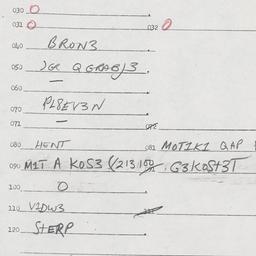 030 O
031 O 032 O
040 BRON3
050 JGR Q GRABJ3
060 —
070 PL8EV3N
071 — 072
080 HENT 081 MOT1K1 QAP
090 M1T A KOS3 G3KOST3T
100 O
110 V1DW3
120 STERP